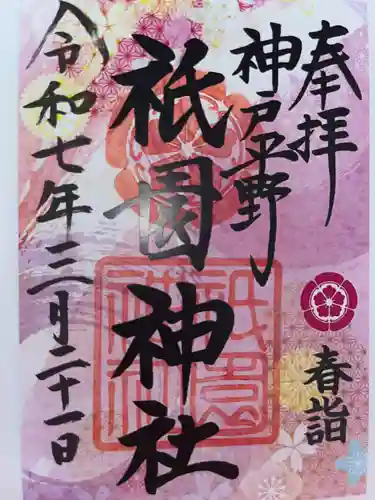 奉拝
神戸平野
祇園神社
令和七年三月二十一日
春詣
祇園
神社